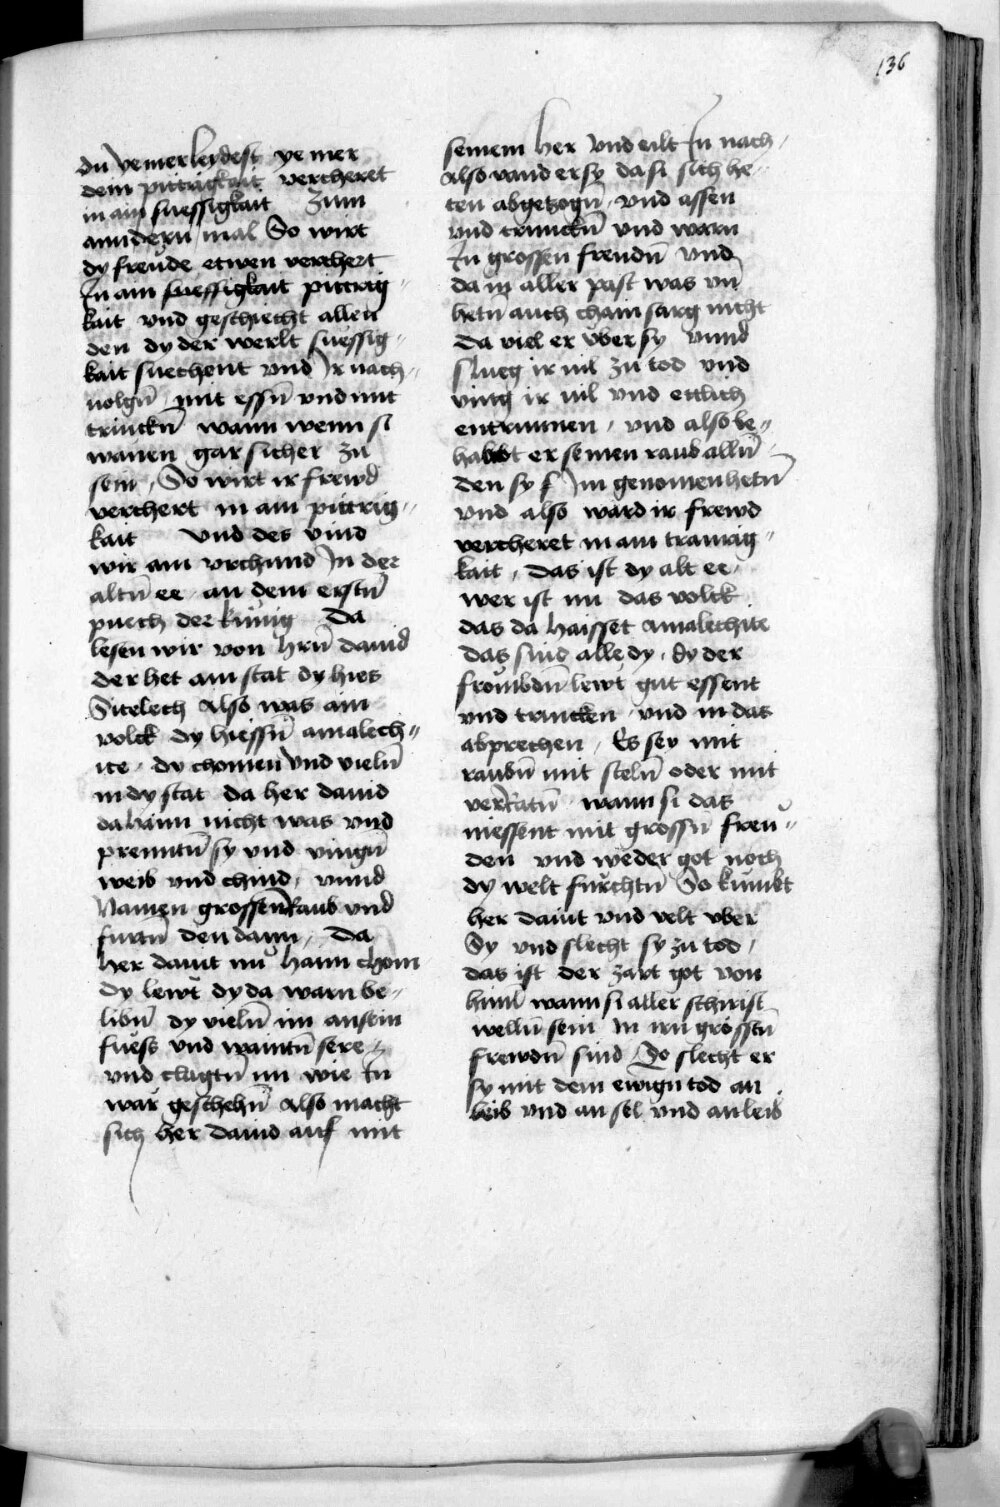 136
du ye mer leydest ye mer
dein pittrigkait vercheret
in ain suessigkait Zum
anndern mal So wirt
dy freude etwen verchert
In ain suessigkait pittrig=
kait vnd geschiecht allen
den dy der werlt suessig=
kait suechent vnd Ir nach=
uolgn̄ mit essn̄ vnd mit
trinckn̄ wann wenn si
wanen gar sicher zu
sein, So wirt ir frewd
verchert in ain pittrig=
kait vnd des vind
wir ain vrchund In der
altn̄ ee an dem erstn̄
puech der künig Da
lesen wir von hrn̄ dauid
der het ain stat dy hies
Sicelech Also was ain
volck dy hiessn̄ amalech=
ite, dy chomen vnd vieln̄
in dy stat da her dauid
da haim nicht was vnd
prenntn̄ sy vnd vingn̄
weib vnd chind, vnnd
Namen grossen Raub vnd
furtn̄ den dann, Da
her dauit nū haim chom
dy lewt dy da warn be=
libn̄ dy vieln̄ im an sein
fuess vnd waintn̄ sere=
vnd clagtn̄ im wie In
war geschehn̄ Also macht
sich her dauid auf mit
seinem her vnd eilt In nach,
Also vand er sy da si sich he=
ten abgetzogn̄, vnd assen
vnd trunckn̄ vnd warn
In grossen freudn̄ vnd
da in aller past was vn̄
hetn̄ auch chain sarg nicht
Da viel er vber sy vnnd
slueg ir vil zu tod vnd
ving ir vil vnd ettlich
entrunnen, vnd also be=
habt er seinen raub alln̄
den sy Im genomen hetn̄
vnd also ward ir frewd
vercheret in ain traurig=
kait, das ist dy alt ee,
wer ist nu das volck
das da haisset amalechite
das sind alle dy, dy der
frombdn̄ lewt gut essent
vnd trincken, vnd in das
abprechen, Es sey mit
raubn̄ mit steln̄ oder mit
verratn̄ wann si das
niessent mit grossn̄ freu=
den vnd weder got noch
dy welt furchtn̄ So kumbt
her dauit vnd velt vber
Sy vnd slecht sy zu tod,
das ist der zart got von
himl wann si aller schirist
welln̄ sein In irn grösstn̄
frewdn̄ sind So slecht er
sy mit dem ewign tod an
leib vnd an sel vnd an leib